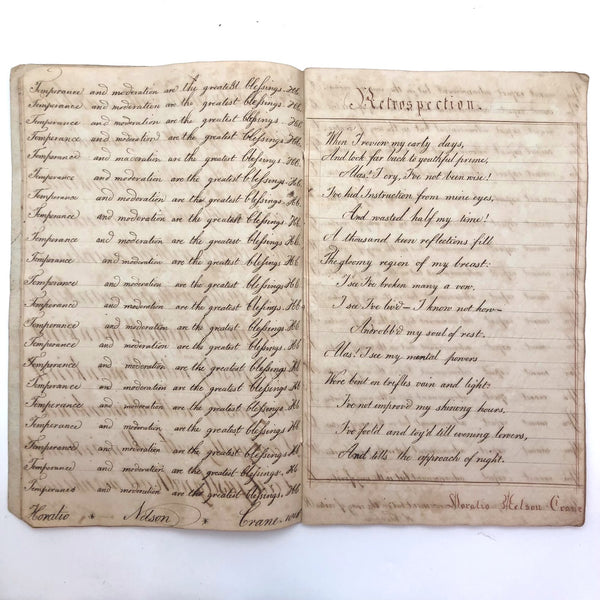 Temperance and moderation are the greatest bleſsings.
Temperance and moderation are the greatest bleſsings.
Temperance and moderation are the greatest bleſsings.
Temperance and moderation are the greatest bleſsings.
Temperance and moderation are the greatest bleſsings.
Temperance and moderation are the greatest bleſsings.
Temperance and moderation are the greatest bleſsings.
Temperance and moderation are the greatest bleſsings.
Temperance and moderation are the greatest bleſsings.
Temperance and moderation are the greatest bleſsings.
Temperance and moderation are the greatest bleſsings.
Temperance and moderation are the greatest bleſsings.
Temperance and moderation are the greatest bleſsings.
Temperance and moderation are the greatest bleſsings.
Temperance and moderation are the greatest bleſsings.
Temperance and moderation are the greatest bleſsings.
Temperance and moderation are the greatest bleſsings.
Temperance and moderation are the greatest bleſsings.
Temperance and moderation are the greatest bleſsings.
Temperance and moderation are the greatest bleſsings.
Temperance and moderation are the greatest bleſsings.
Horatio * Nelson * Crane
Retrospection.
When I review my early days,
And look far back to youthful prime,
Alas! I cry, I've not been wise!
I've hid Instruction from mine eyes,
And wasted half my time!
A thousand keen reflections fill
The gloomy region of my breast:
I see I've broken many a vow,
I see I've liv'd – I know not how –
And robb'd my soul of rest.
Alas! I see my mental powers
Were bent on trifles vain and light:
I've not improv'd my shining hours,
I've fool'd and toy'd till evening lowers,
And tells the approach of night.
Horatio Nelson Crane